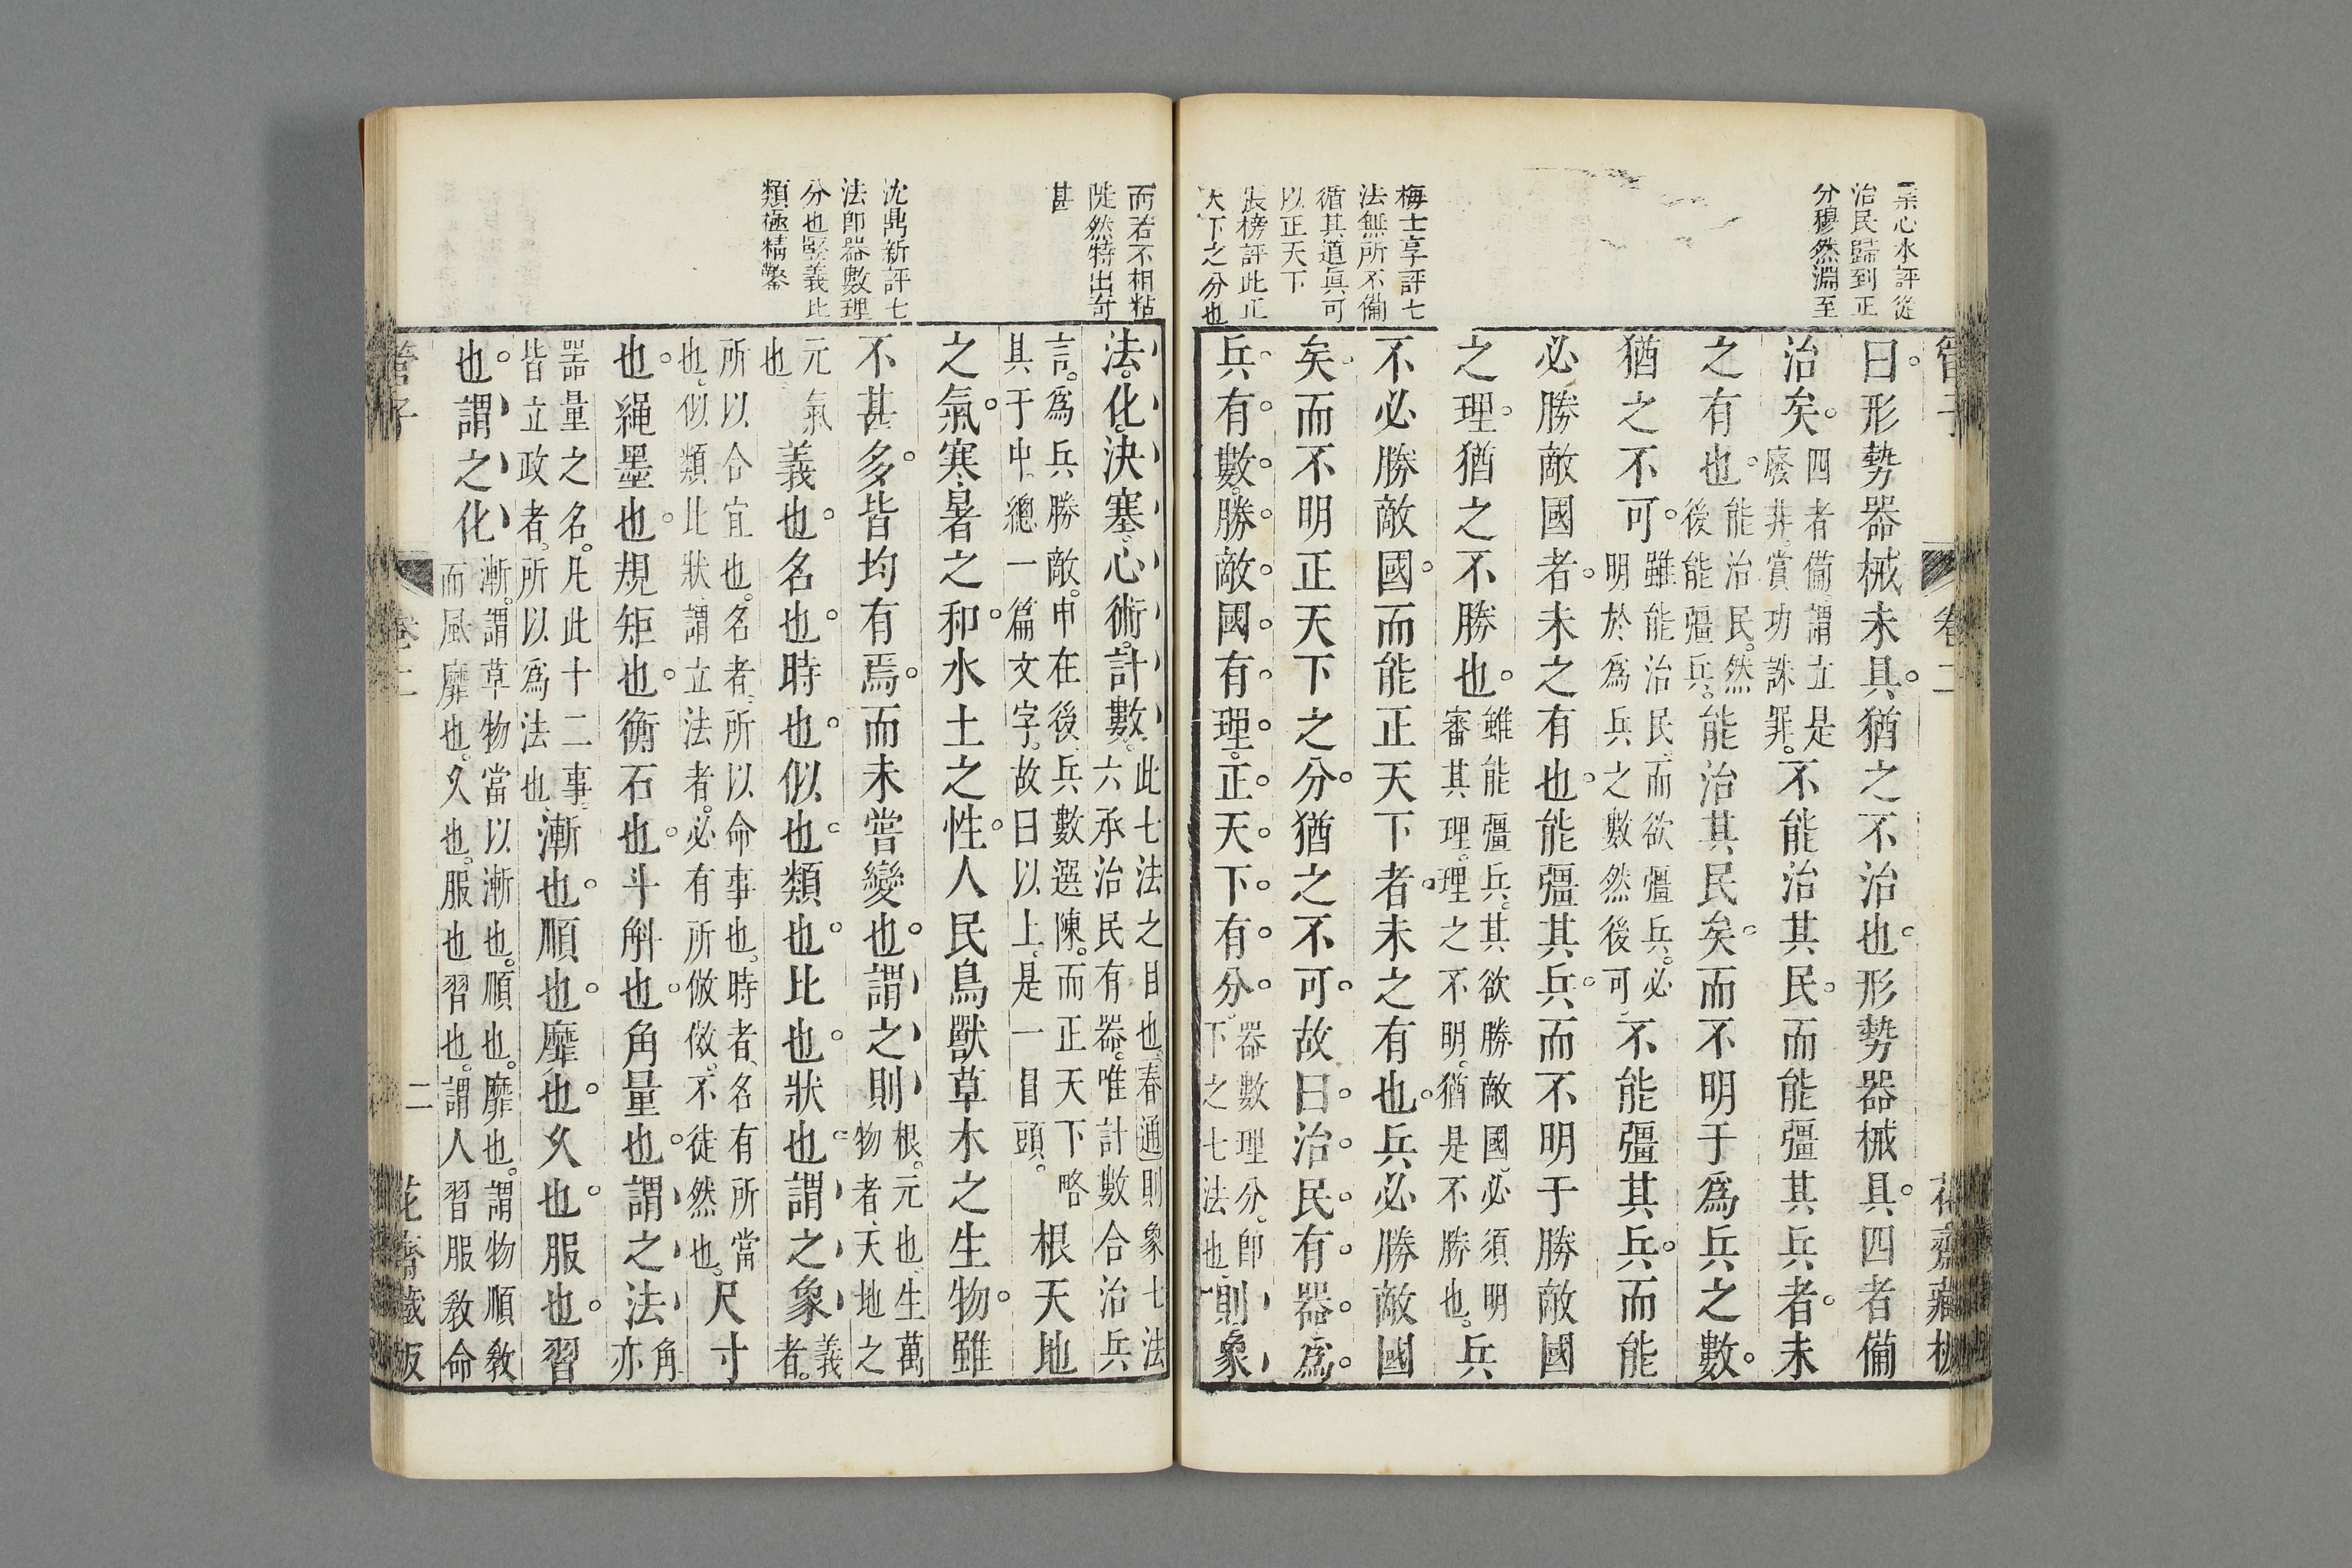 心水評從
治民歸到正
分穆然淵至
梅士享評七
法無所不備
循其道眞可
以正天下
張榜評此正
天下之分也
管子 卷二 花齋藏板
曰形勢器械未具猶之不治也形勢器械具四者備
治矣四者備謂立是廢井賞功誅罪不能治其民而能彊其兵者未
之有也能治民然後能彊兵能治其民矣而不明于爲兵之數
猶之不可雖能治民而欲彊兵必明於爲兵之數然後可不能彊其兵而能
必勝敵國者未之有也能彊其兵而不明于勝敵國
之理猶之不勝也雖能彊兵其欲勝敵國必須明審其理理之不明猶是不勝也兵
不必勝敵國而能正天下者未之有也兵必勝敵國
矣而不明正天下之分猶之不可故曰治民有器爲
兵有數勝敵國有理正天下有分器數理分即下之七法也則象
而若不相粘
陡然特出奇
甚
沈鼎新評七
法即器數理
分也竪義比
類極精鑿
法化決塞心術計數此七法之目也春通則象七法六承治民有器唯計數合治兵
言爲兵勝敵申在後兵數選陳而正天下略其于中總一篇文字故曰以上是一目頭根天地
之氣寒暑之和水土之性人民鳥獸草木之生物雖
不甚多皆均有焉而未嘗變也謂之則根元也生萬物者天地之
元氣也義也名也時也似也類也比也狀也謂之象義者
所以合宜也名者所以命事也時者名有所當也似類比狀謂立法者必有所倣傚不徒然也尺寸
也繩墨也規矩也衡石也斗斛也角量也謂之法角亦
器量之名凡此十二事皆立政者所以爲法也漸也順也靡也久也服也習
也謂之化漸謂草物當以漸也順也靡也謂物順敎而風靡也久也服也習也謂人習服敎命
管子 卷二 二 花齋藏板